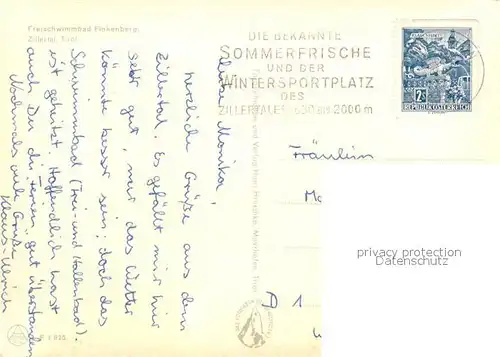 Freischwimmbad Finkenberg,
Zillertal, Tirol
Liebe Monika,
herzliche Grüße aus dem
Zillertal. Es gefällt mir hier
sehr gut, nur das Wetter
könnte besser sein; doch das
Schwimmbad (Frei- und Hallenbad)
ist geheizt. Hoffentlich hast
auch Du die Ferien gut überstanden.
Nochmals viele Grüße
Klaus-Ulrich
DIE BEKANNTE
SOMMERFRISCHE
UND DER
WINTERSPORTPLATZ
DES
ZILLERTALES 630 BIS 2000 m
REPUBLIK ÖSTERREICH
Fräulein
D 1
privacy protection
Datenschutz